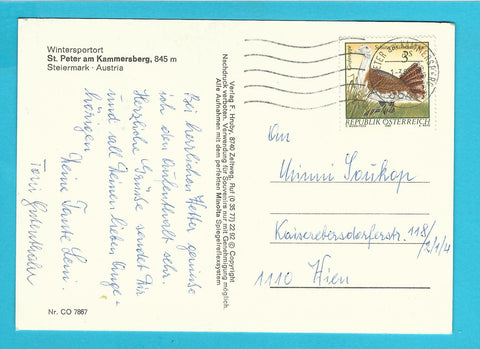 Wintersportort
St. Peter am Kammersberg, 845 m
Steiermark · Austria
Bei herrlichem Wetter genieße
ich den Aufenthalt sehr.
Herzliche Grüße sendet Dir
und all Deinen lieben Ange-
hörigen Deine Tante Leni.
Toni
Nr. CO 7867
Verlag F. Hruby, 8740 Zeltweg, Ruf (0 35 77) 22 92 © Copyright
Nachdruck verboten. Verwendung für Souvenirs nur mit Genehmigung möglich.
Alle Aufnahmen mit dem perfekten Minolta Spiegelreflexsystem
3S
REPUBLIK ÖSTERREICH
An
Mimmi Soukop
Kaiserebersdorferstr. 118/
2/1/4
1110 Wien